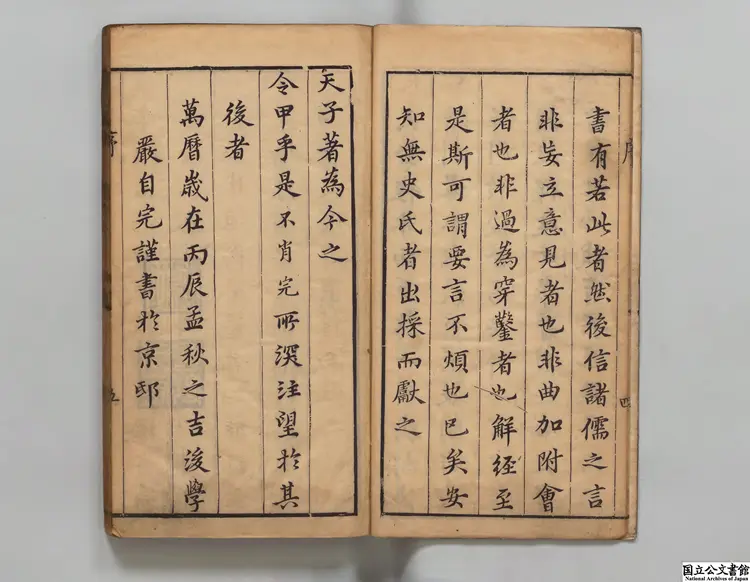 書有若此者然後信諸儒之言
非妄立意見者也非曲加附會
者也非過為穿鑿者也解經至
是斯可謂要言不煩也已矣安
知無史氏者出採而獻之
天子著為今之
令甲乎是不肖完所深注望於其
後者
萬曆歲在丙辰孟秋之吉後學
嚴自完謹書於京邸
序
四
序
五
国立公文書館
National Archives of Japan